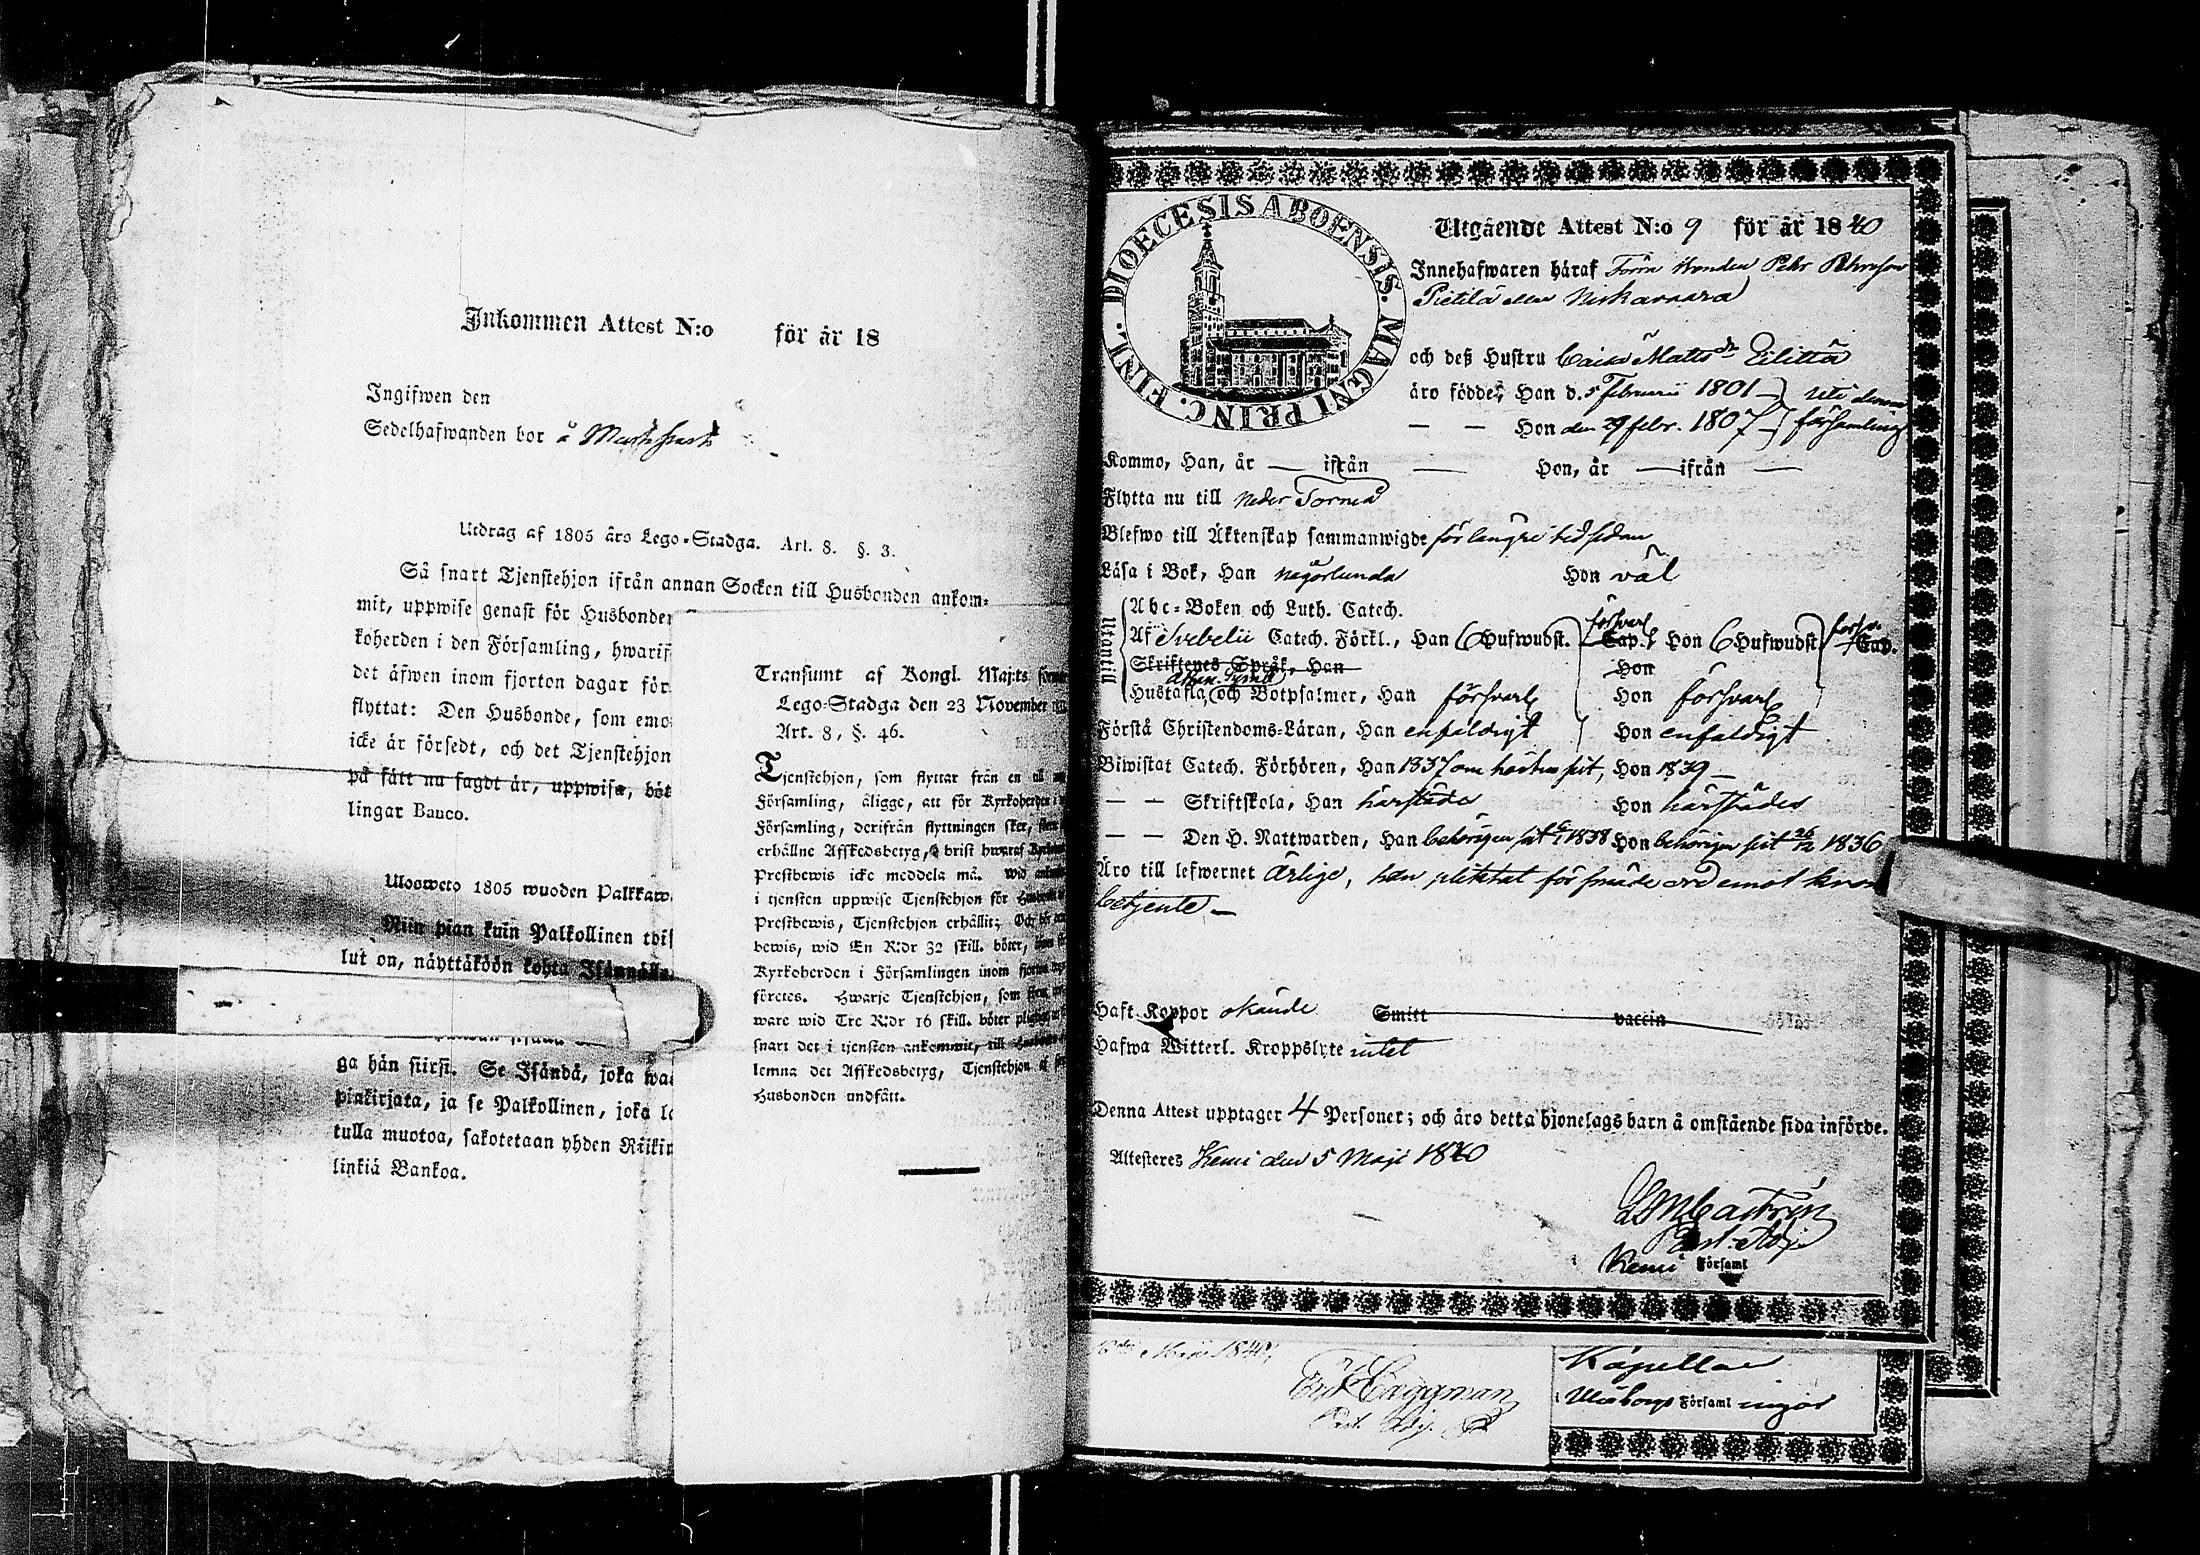 Inkommen Attest N:o för år 18
Ingifwen den
Sedelhafwanden bor å
Utdrag af 1805 års Lego-Stadga. Art. 8. §. 3.
Så snart Tjenstehjon ifrån annan Socken till Husbonden ankom-
mit, uppwise genast för Husbonden
koherden i den Församling, hwarif
det äfwen inom fjorton dagar för
flyttat: Den Husbonde, som emo
icke är försedt, och det Tjenstehjon
på sätt nu sagdt är, uppwisa, böt
lingar Banco.
Ulosweto 1805 wuoden Palkkaw
Niin pian kuin Palkollinen tois
lut on, näyttäköön kohta Isännälle
ga hän siirsi. Se Isändä, joka wa
pinkirjata, ja se Palkollinen, joka
tulla muotoa, sakotetaan yhden Riikin
linkiä Bankoa.
Transumt af Kongl. Maj:ts
Lego-Stadga den 23 November
Art. 8, §. 46.
Tjenstehjon, som flyttar från en til
Församling, åligge, att för Kyrkoherden i
Församling, derifrån flyttningen sker,
erhållne Afskedsbetyg, i brist hwaraf
Prestbewis icke meddela må. Wid
i tjensten uppwise Tjenstehjon för
Prestbewis, Tjenstehjon erhållit; Och
bewis, wid En R:dr 32 skill. böter,
Kyrkoherden i Församlingen inom
företes. Hwarje Tjenstehjon, som
ware wid Tre R:dr 16 skill. böter
snart det i tjensten ankommit, till
lemna det Afskedsbetyg, Tjenstehjon af
Husbonden undfått.
DIOECESIS ABOENSIS. MAGNI PRINC. FINL.
Utgående Attest N:o 9 för år 1840
Innehafwaren häraf Förra Bonden Pehr
Pietilä eller Niskavaara
och deß Hustru Caisa Matts dr Eilittä
äro födde, Han d. 5 Februarii 1801 uti denna
— — Hon den 29 febr. 1807 församling
Kommo, Han, år — ifrån — Hon, år — ifrån —
Flytta nu till Neder Torneå
Blefwo till Äktenskap sammanwigde för längre tid sedan
Läsa i Bok, Han någorlunda Hon väl
Utantill
Abc-Boken och Luth. Catech.
Af Svebelii Catech. Förkl., Han 6 Hufwudst. försvarl Cap. Hon 6 Hufwudst. försv. Cap.
Skriftenes Språk, Han Hon
Athan. Symb.
Hustafla, och Botpsalmer, Han försvarl Hon försvarl
Förstå Christendoms-Läran, Han enfaldigt Hon enfaldigt
Biwistat Catech. Förhören, Han 1837 om hösten sist, Hon 1839 —
— — Skriftskola, Han härstädes Hon härstädes
— — Den H. Nattwarden, Han behörigen sist 1838 Hon behörigen sist 26/12 1836
Äro till lefwernet ärlige, han pliktat för snäde ord emot krono
betjente —
Haft Koppor skände Smitt vaccin
Hafwa Witterl. Kroppslyte intet
Denna Attest upptager 4 Personer; och äro detta hjonelags barn å omstående sida införde.
Attesteres Kemi den 5 Maji 1840
Castrén
Past. Adj.
Kemi Församl
Maji 1840,
Caggman
Past. Adj.
Kapellan
i Uleåborgs Församl